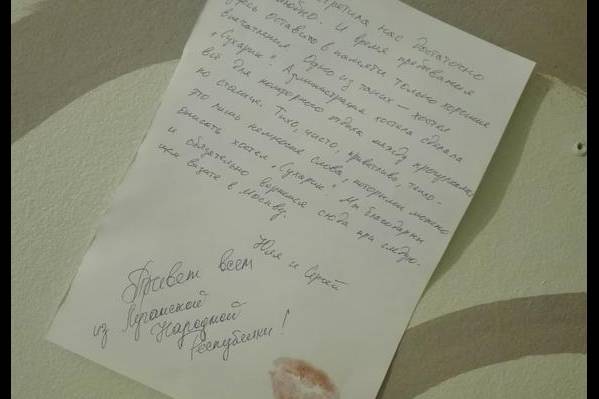 встретила нас достаточно
дружелюбно. И время пребывания
здесь оставило в памяти только хорошие
впечатления. Одно из таких – хостел
„Сухарик". Администрация хостела сделала
всё для комфортного отдыха между прогулками
по столице. Тихо, чисто, приветливо, тепло –
это лишь немногие слова, которыми можно
описать хостел „Сухарик". Мы благодарны
и обязательно вернёмся сюда при следую-
щем визите в Москву.
Юля и Сергей
Привет всем
из Луганской
Народной
Республики!